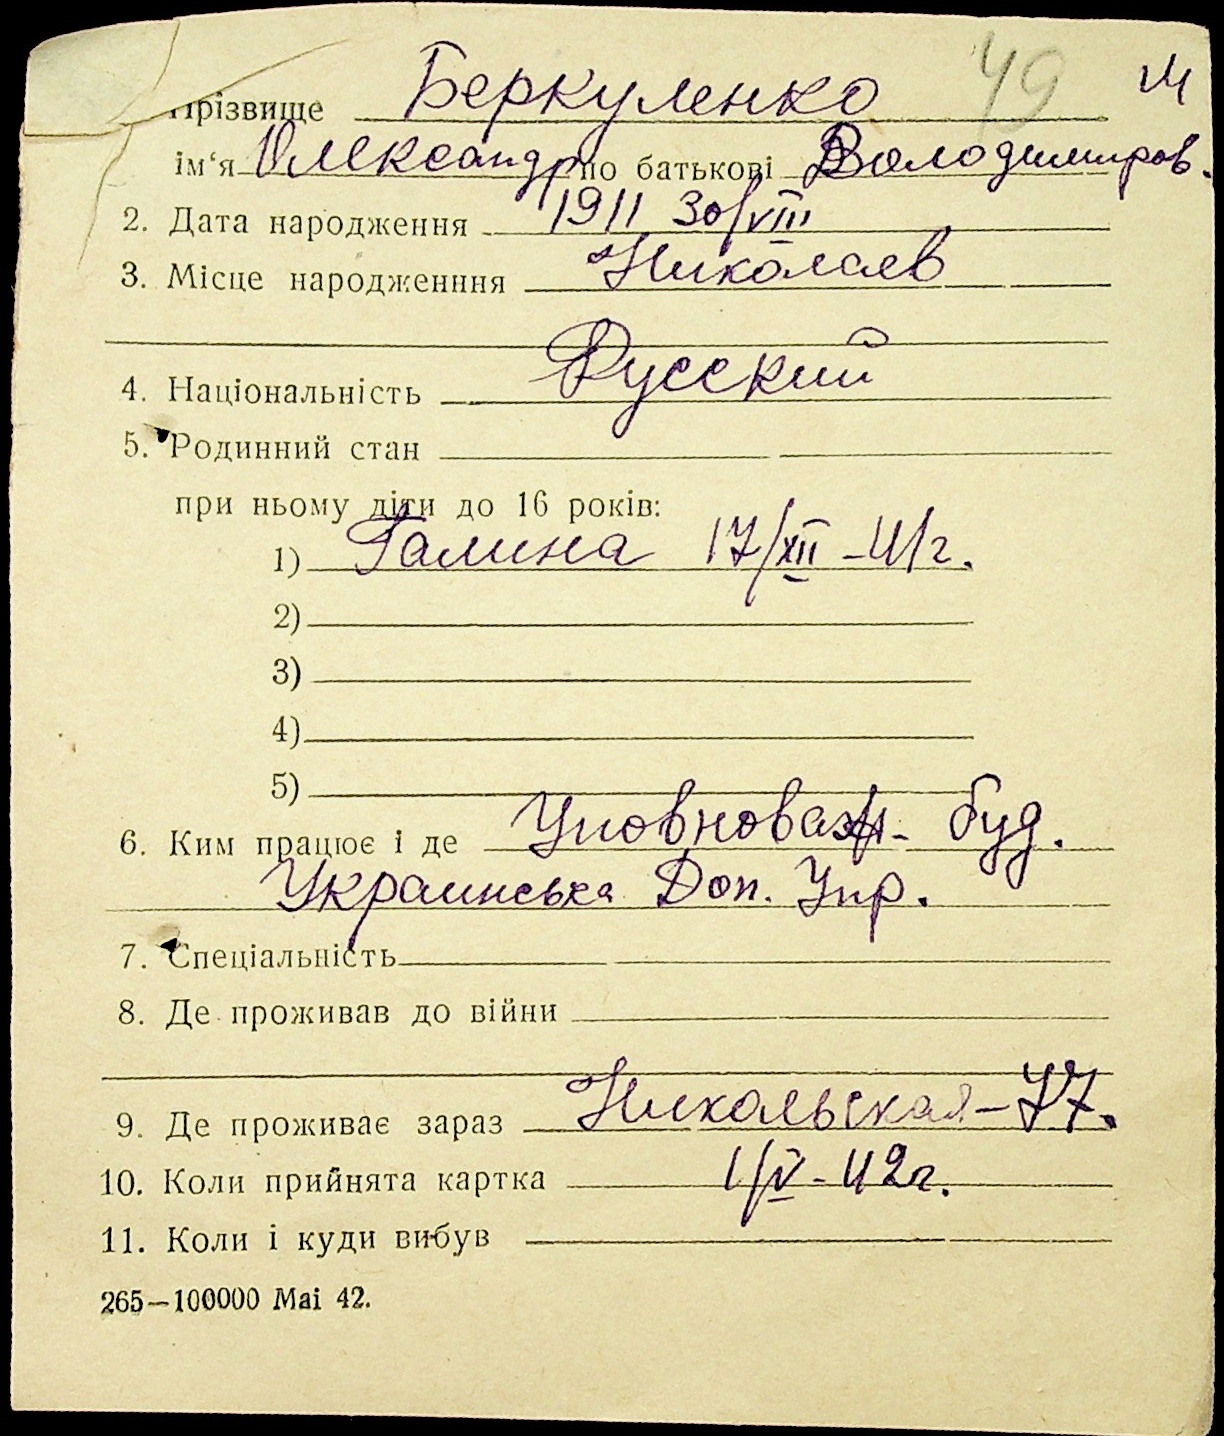 Прізвище Беркуленко 49 М
ім‘я Олександр по батькові Володимиров.
2. Дата народження 1911 30/VIII
3. Місце народженння Николаев
4. Національність Русский
5. Родинний стан
при ньому діти до 16 років:
1) Галина 17/XII - 41 г.
2)
3)
4)
5)
6. Ким працює і де Уповноваж. буд.
Украинська Доп. Упр.
7. Спеціальність
8. Де проживав до війни
9. Де проживає зараз Никольская - 77.
10. Коли прийнята картка 1/V - 42 г.
11. Коли і куди вибув
265—100000 Mai 42.